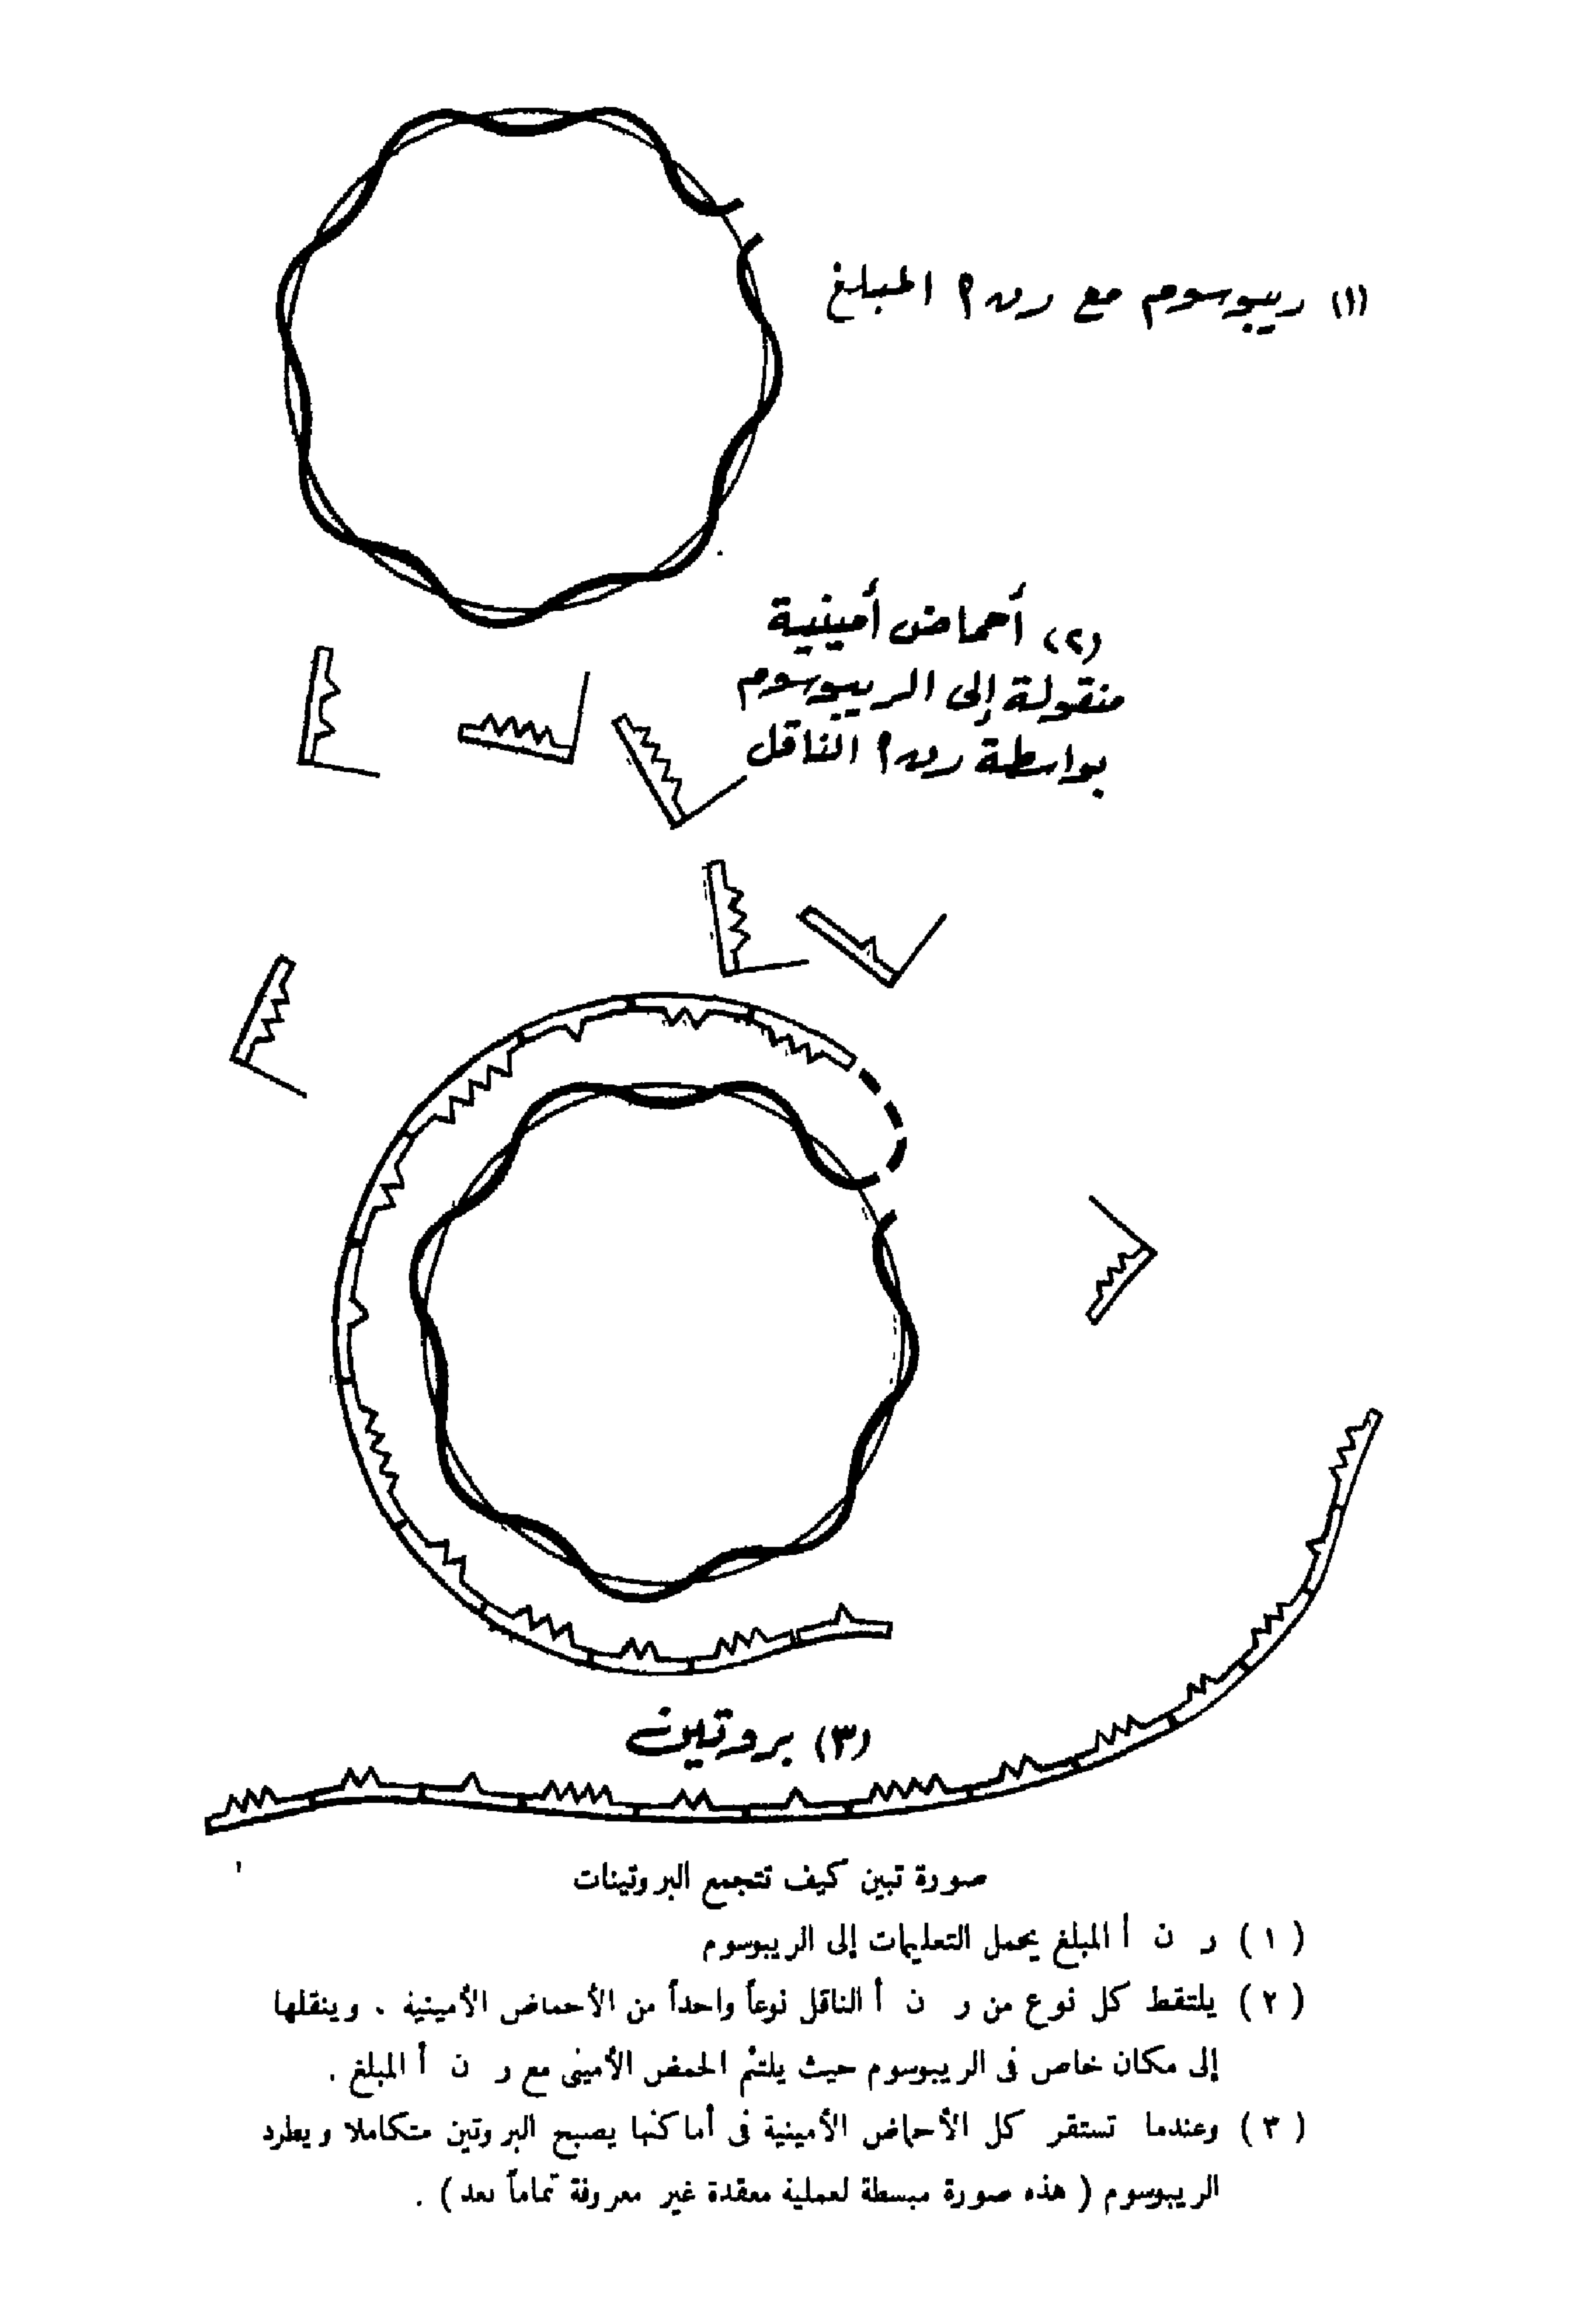 (١) ريبوسوم مع رن أ المبلغ
(٢) أحماض أمينية
منقولة إلى الريبوسوم
بواسطة رن أ الناقل
(٣) بروتين
صورة تبين كيف تتجمع البروتينات
( ١ ) ر ن أ المبلغ يحمل التعليمات إلى الريبوسوم
( ٢ ) يلتقط كل نوع من ر ن أ الناقل نوعاً واحداً من الأحماض الأمينية . وينقلها
إلى مكان خاص فى الريبوسوم حيث يلتئم الحمض الأمينى مع ر ن أ المبلغ .
( ٣ ) وعندما تستقر كل الأحماض الأمينية فى أماكنها يصبح البروتين متكاملا ويطرد
الريبوسوم ( هذه صورة مبسطة لعملية معقدة غير معروفة تماماً بعد ) .